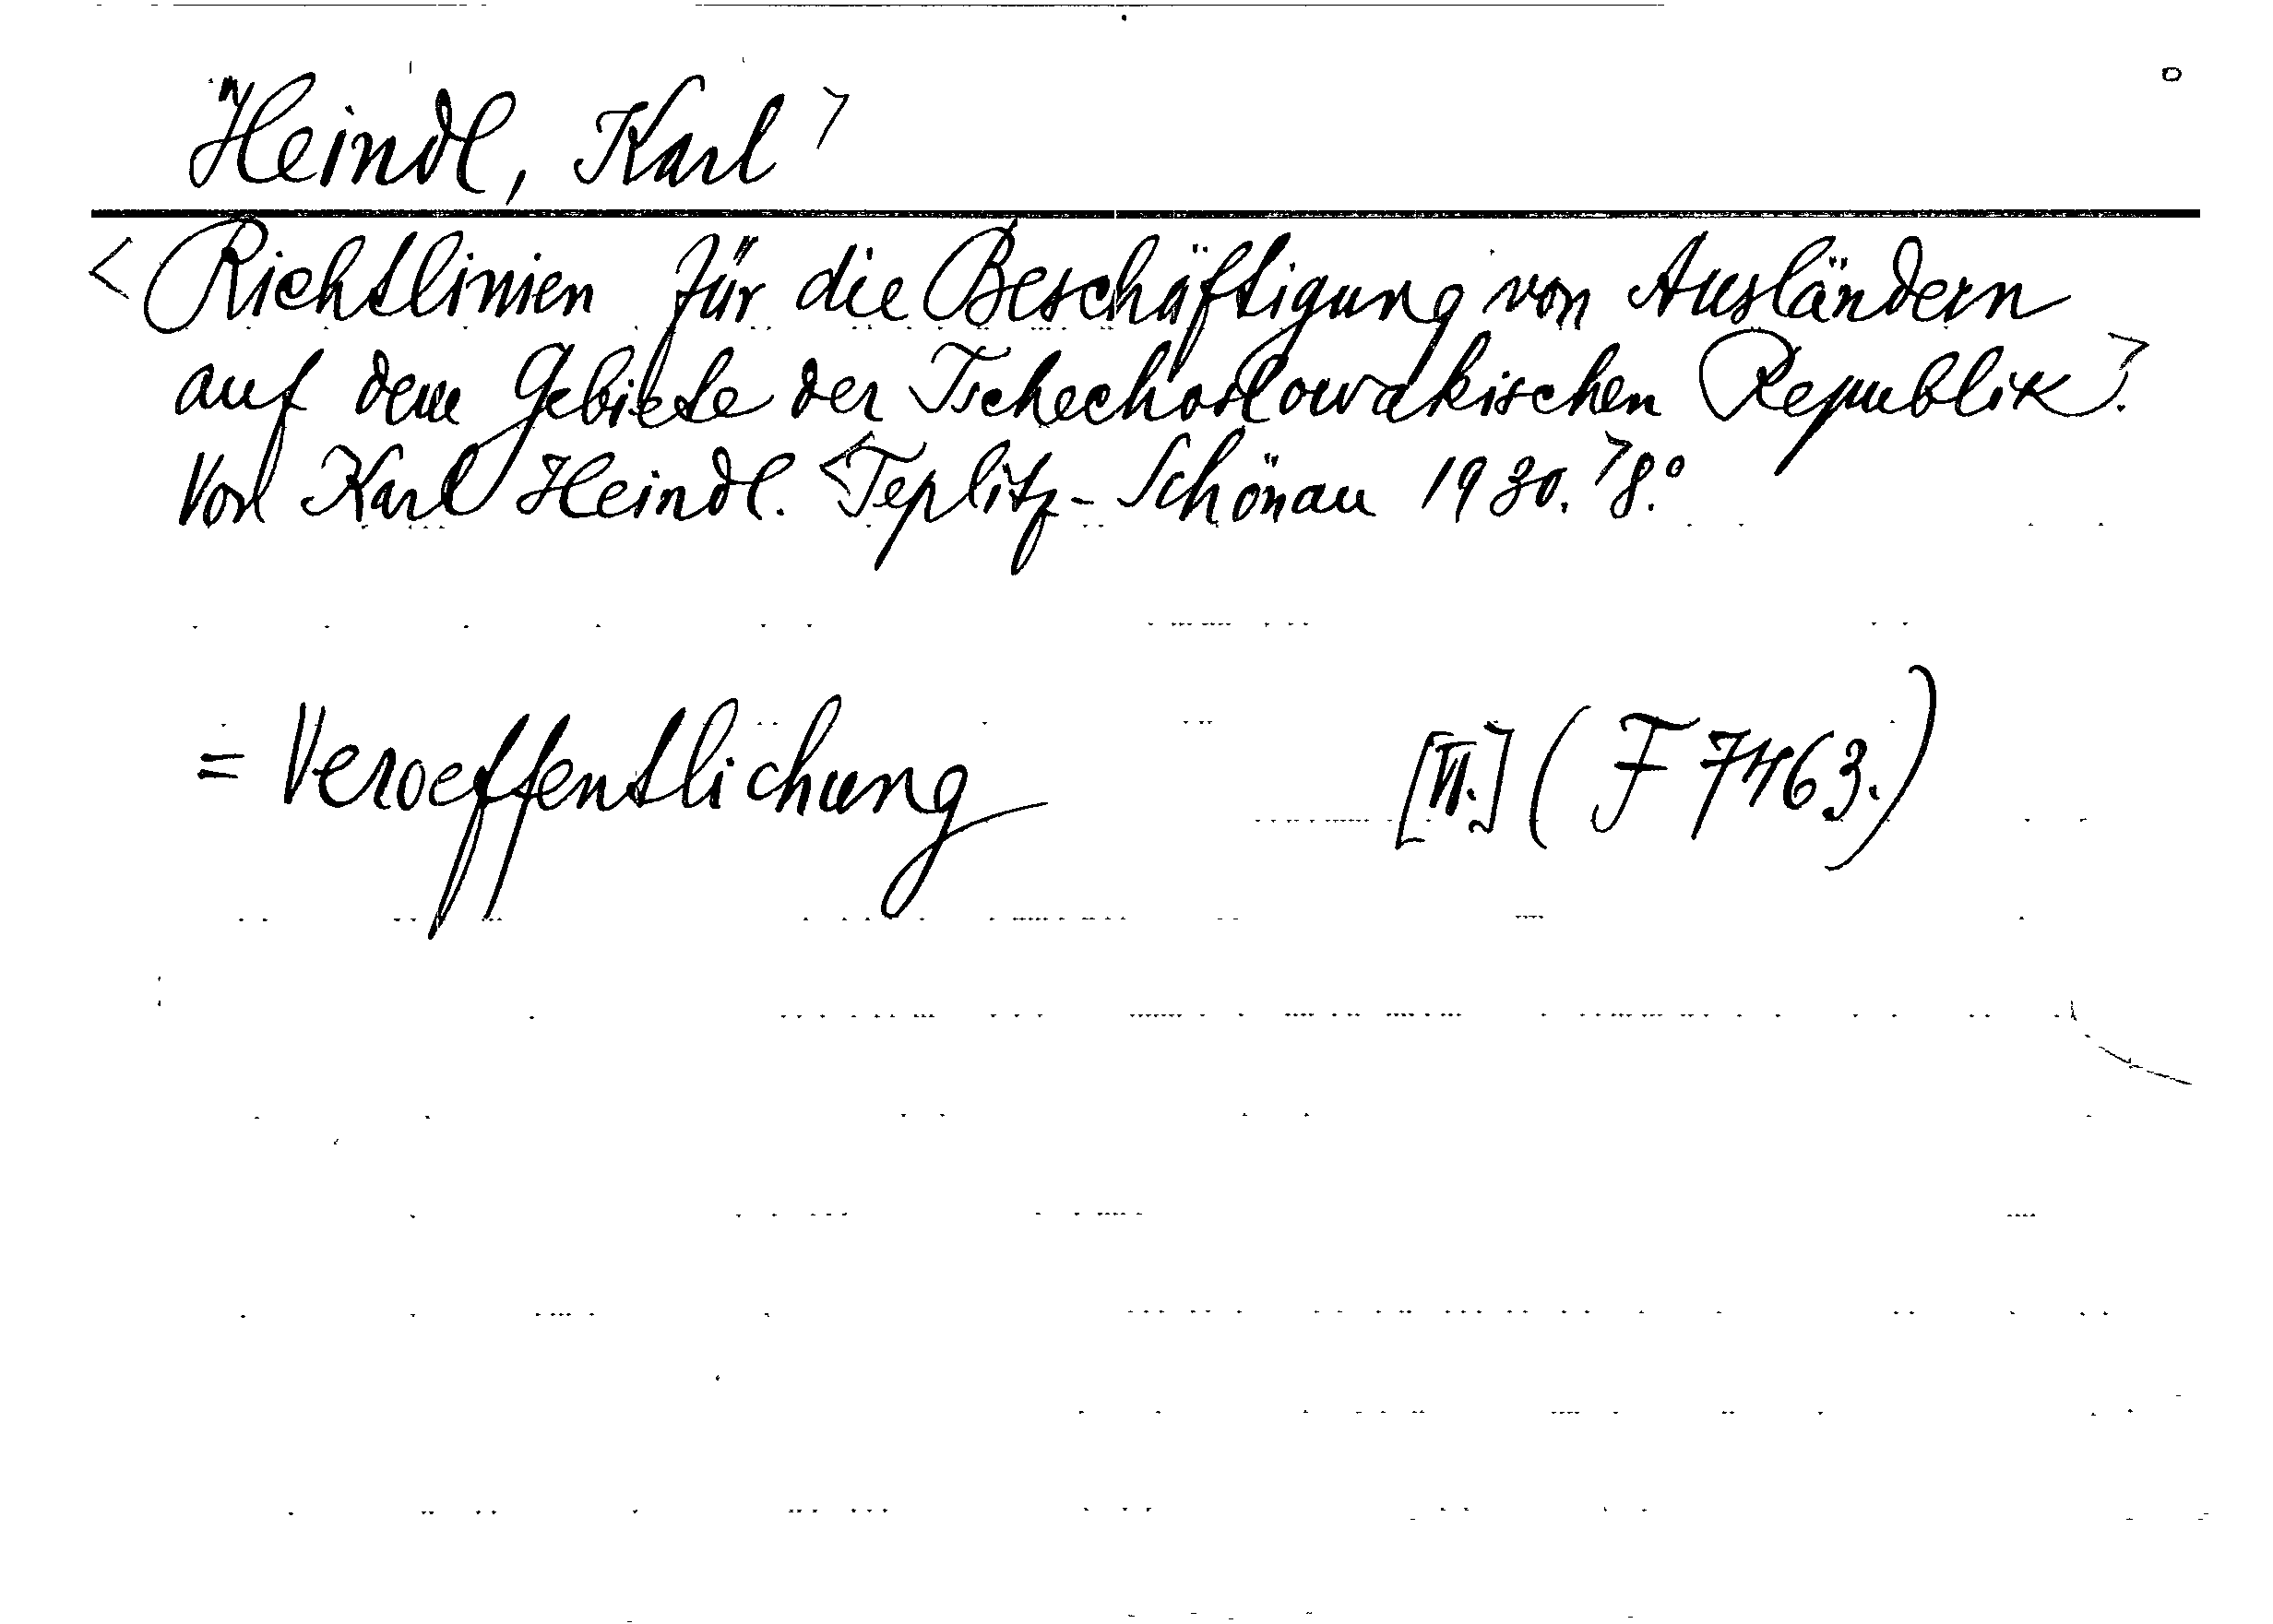 "Heindl, Karl>
<Richtlinien für die Beschäftigung von Ausländern
auf dem Gebiete der Tschechoslowakischen Republik>.
Von Karl Heindl. <Teplitz-Schönau 1930.> 8.°
= Veroeffentlichung [VI.] (F 7463.)